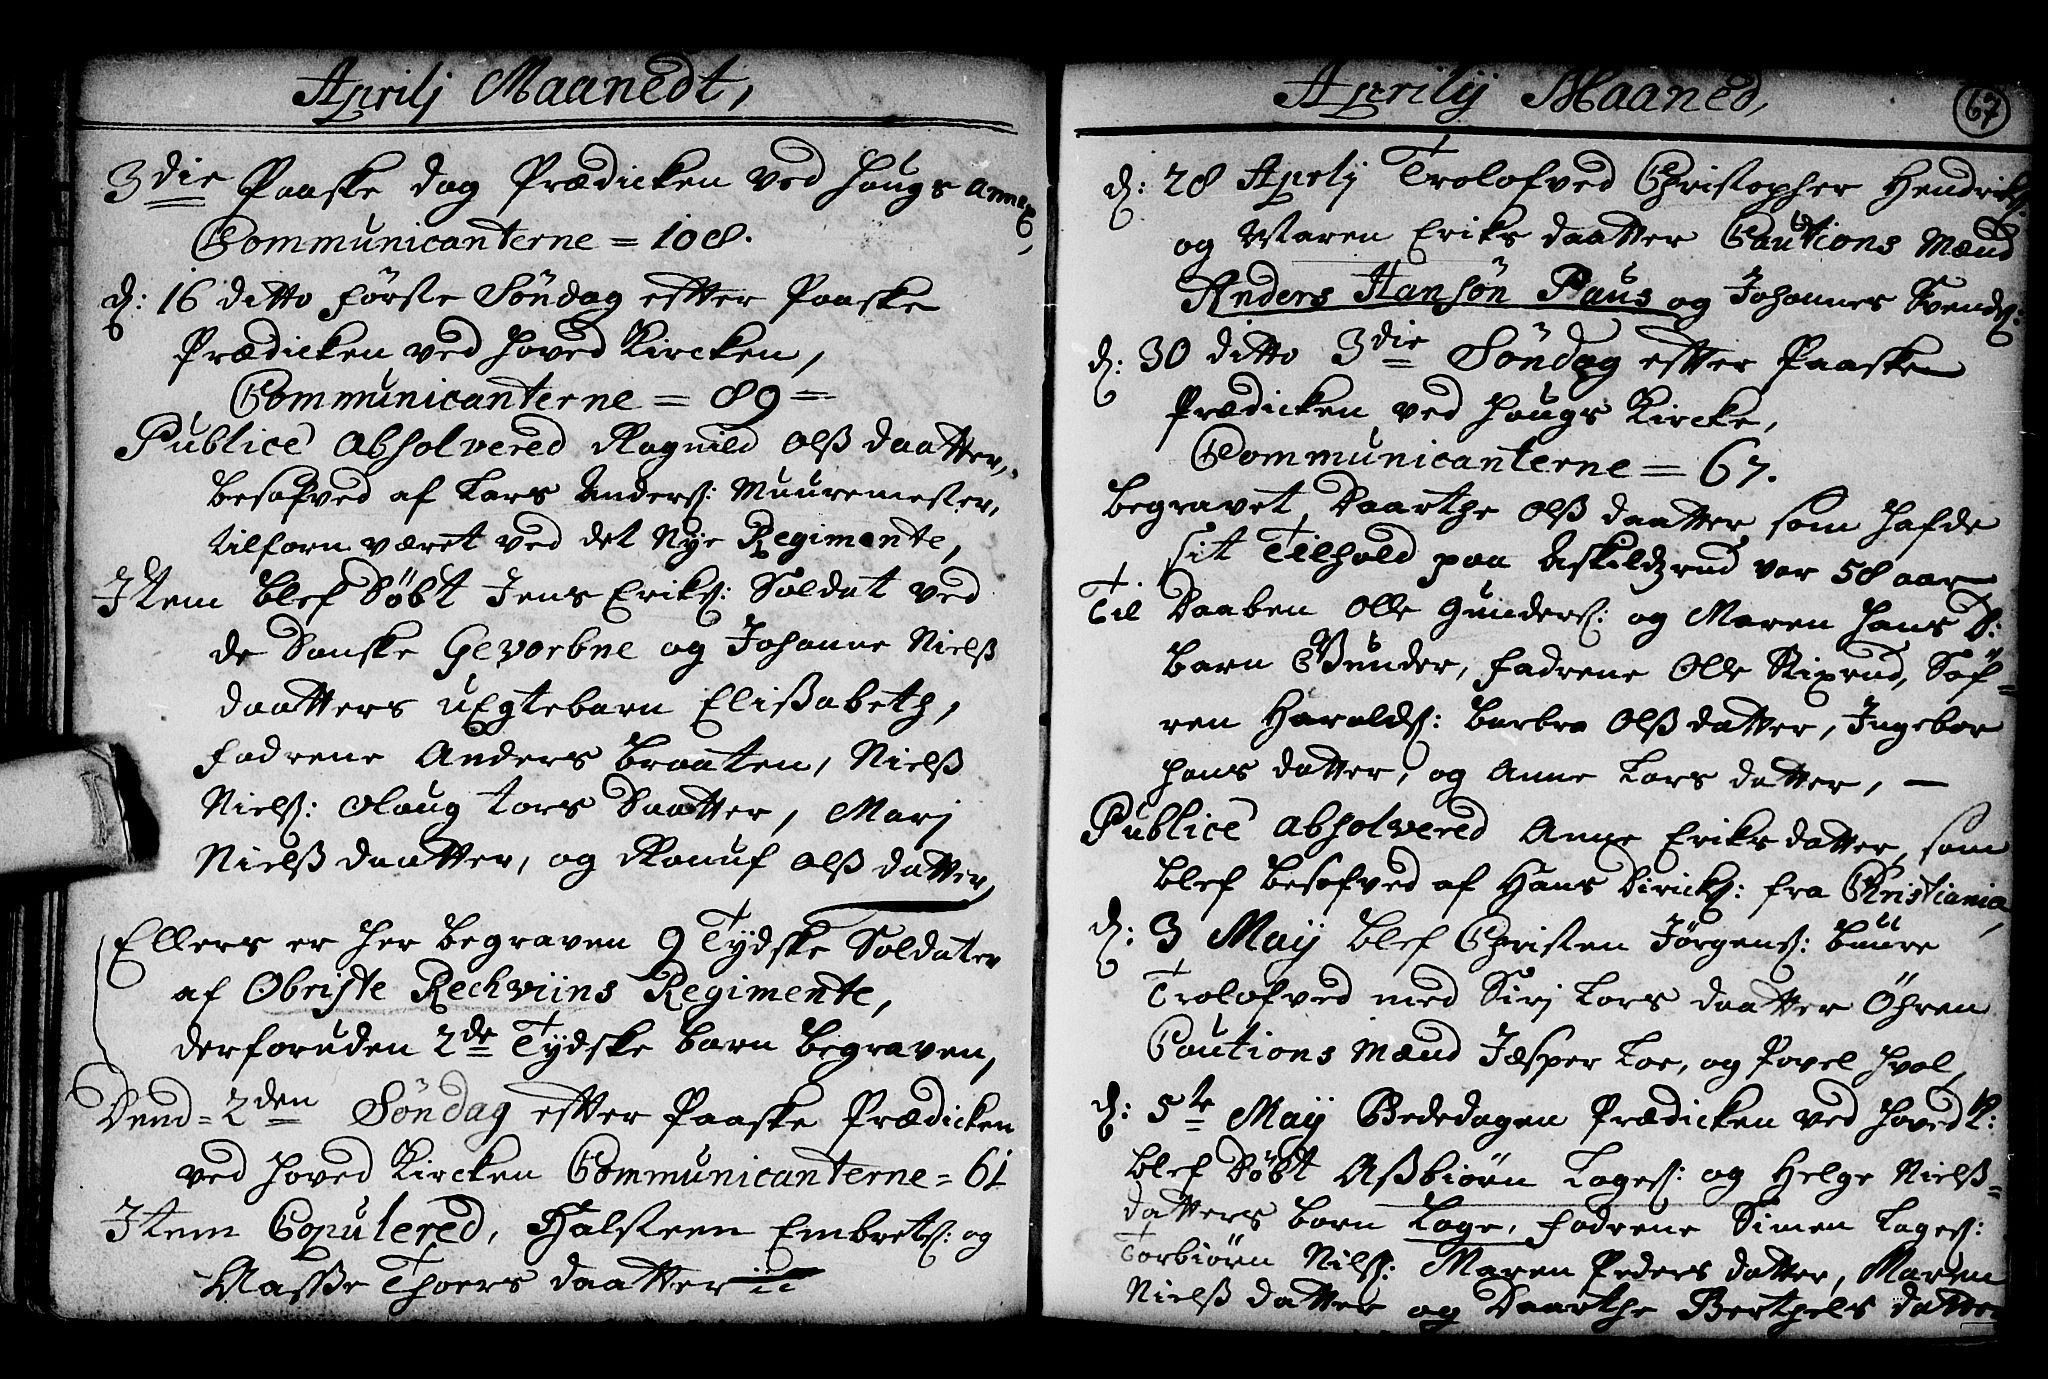 Aprilj Maanedt,
3die Paaske dag Prædicken ved Hougs Annex,
Communicanterne = 108.
d: 16 ditto förste Söndag efter Paaske
Prædicken ved Hoved Kircken,
Communicanterne = 89 =
Publicè Absolvered Ragnild Olß daatter,
besofved af Lars Anderß: Muuremester,
tilforn været ved det Nye Regimente,
Item blef döbt Jens Eriks: Soldat ved
de Danske Gevorbne og Johanne Nielß
daatters uEgtebarn Elißabeth,
fadrene Anders Braaten, Nielß
Nielß: Olaug Lars Daatter, Marj
Nielß daatter, og Ronuf Olß datter,
Ellers er her begraven 9 Tydske Soldater
af Obriste Rechviins Regimente,
derforuden 2de Tydske barn begraven,
Dend = 2den Söndag efter Paaske Prædicken
ved Hoved Kircken Communicanterne = 61
Item Copulered, Halsteen Embretß: og
Maße Thoers daatter
Aprilij Maaned,
67
d: 28 Aprlj Trolofved Christopher Hendrikß:
og Maren Eriks daatter Cautions Mænd
Anders Hansön Paus og Johannes Svendß:
d: 30 ditto 3die Söndag efter Paasken
Prædicken ved Hougs Kircke,
Communicanterne = 67.
Begravet, Daarthe Olß daatter som hafde
sit Tilhold paa Askildzrud var 58 aar
Til Daaben Olle Gunderß: og Maren Hans D:
barn Gunder, fadrene Olle Riprud, Söf=
ren Haraldß: Barbra Olß datter, Ingebor
Hans datter, og Anne Lars datter, —
Publicè absolvered Anne Eriks datter, som
blef besofved af Hans Dirickß: fra Christiania,
d: 3 Maij blef Christen Jörgenß: Buure
Trolofved med Sirj Lars daatter Öhren
Cautions Mænd Jæsper Loe, og Povel Hval,
d: 5te Maij Bededagen Prædicken ved Hoved K:
blef Döbt Aßbiörn Lageß: og Helge Nielß=
datters barn Lage, fadrene Simen Lageß:
Torbiörn Nilß: Maren Peders datter, Maren
Nielß datter og Daarthe Berthels datter